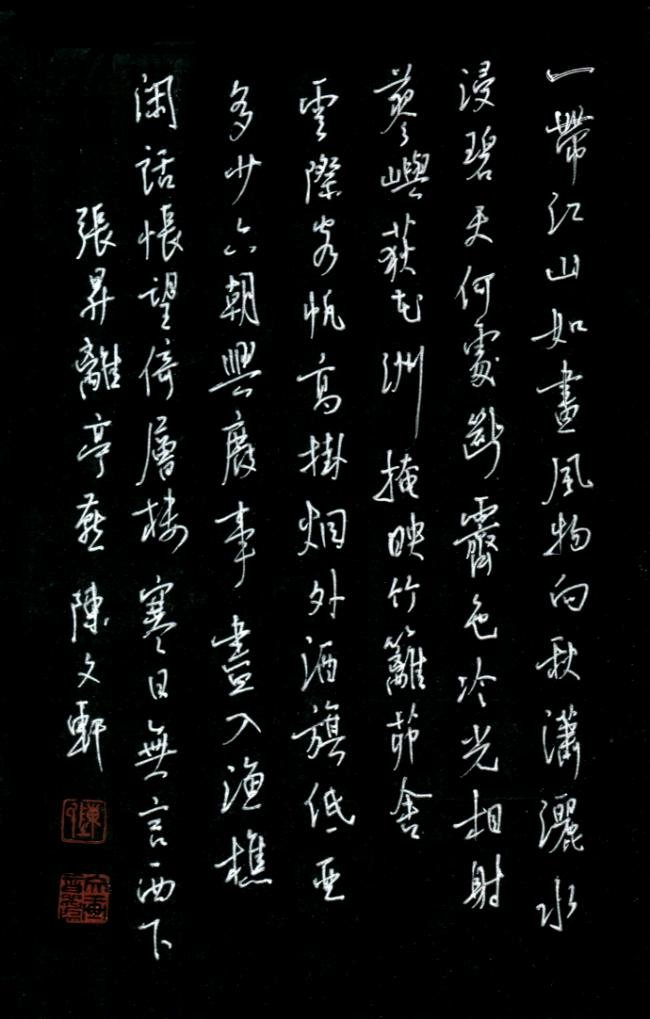 一帶江山如畫風物向秋瀟灑水
浸碧天何處斷霽色冷光相射
蓼嶼荻花洲掩映竹籬茆舍
雲際客帆高掛烟外酒旗低亞
多少六朝興廢事盡入漁樵
閑話悵望倚層樓寒日無言西下
張昇離亭燕 陳文郁